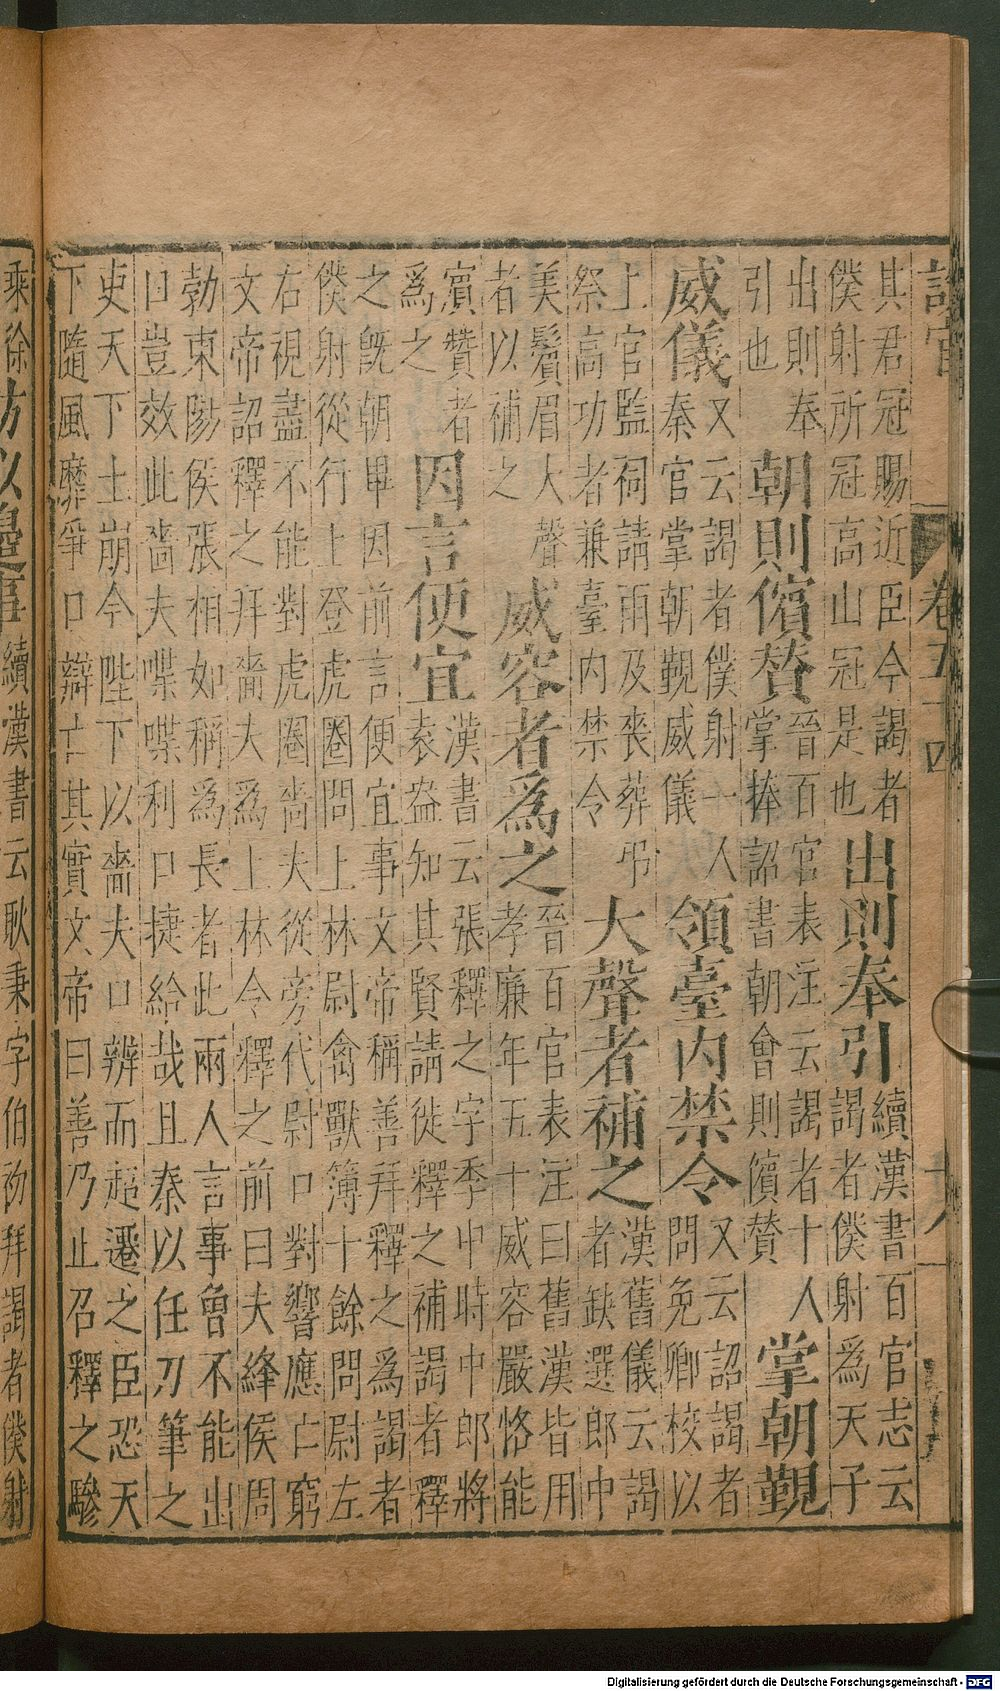 設官
卷五十四
十八
其君冠賜近臣今謁者
僕射所冠高山冠是也
出則奉引
續漢書百官志云
謁者僕射為天子
出則奉
引也
朝則儐賛
晉百官表注云謁者十人
掌捧詔書朝會則儐贊
掌朝覲
威儀
又云謁者僕射一人
秦官掌朝覲威儀
領臺内禁令
又云詔謁者
問免卿校以
上官監祠請雨及喪葬弔
祭高功者兼臺内禁令
大聲者補之
漢舊儀云謁
者缺選郎中
美鬢眉大聲
者以補之
威容者為之
晉百官表注曰舊漢皆用
孝廉年五十威容嚴恪能
賔贊者
為之
因言便宜
漢書云張釋之字季中時中郎將
袁盎知其賢請徙釋之補謁者釋
之旣朝畢因前言便宜事文帝稱善拜釋之為謁者
僕射從行上登虎圈問上林尉禽獸簿十餘問尉左
右視盡不能對虎圈嗇夫從旁代尉口對響應亡窮
文帝詔釋之拜嗇夫為上林令釋之前曰夫絳侯周
勃東陽侯張相如稱為長者此兩人言事曾不能出
口豈效此嗇夫喋喋利口捷給哉且秦以任刀筆之
吏天下土崩今陛下以嗇夫口辨而超遷之臣恐天
下隨風靡爭口辯亡其實文帝曰善乃止召釋之驂
乘徐
防以邊事
續漢書云耿秉字伯初拜謁者僕射
Digitalisierung gefördert durch die Deutsche Forschungsgemeinschaft - DFG